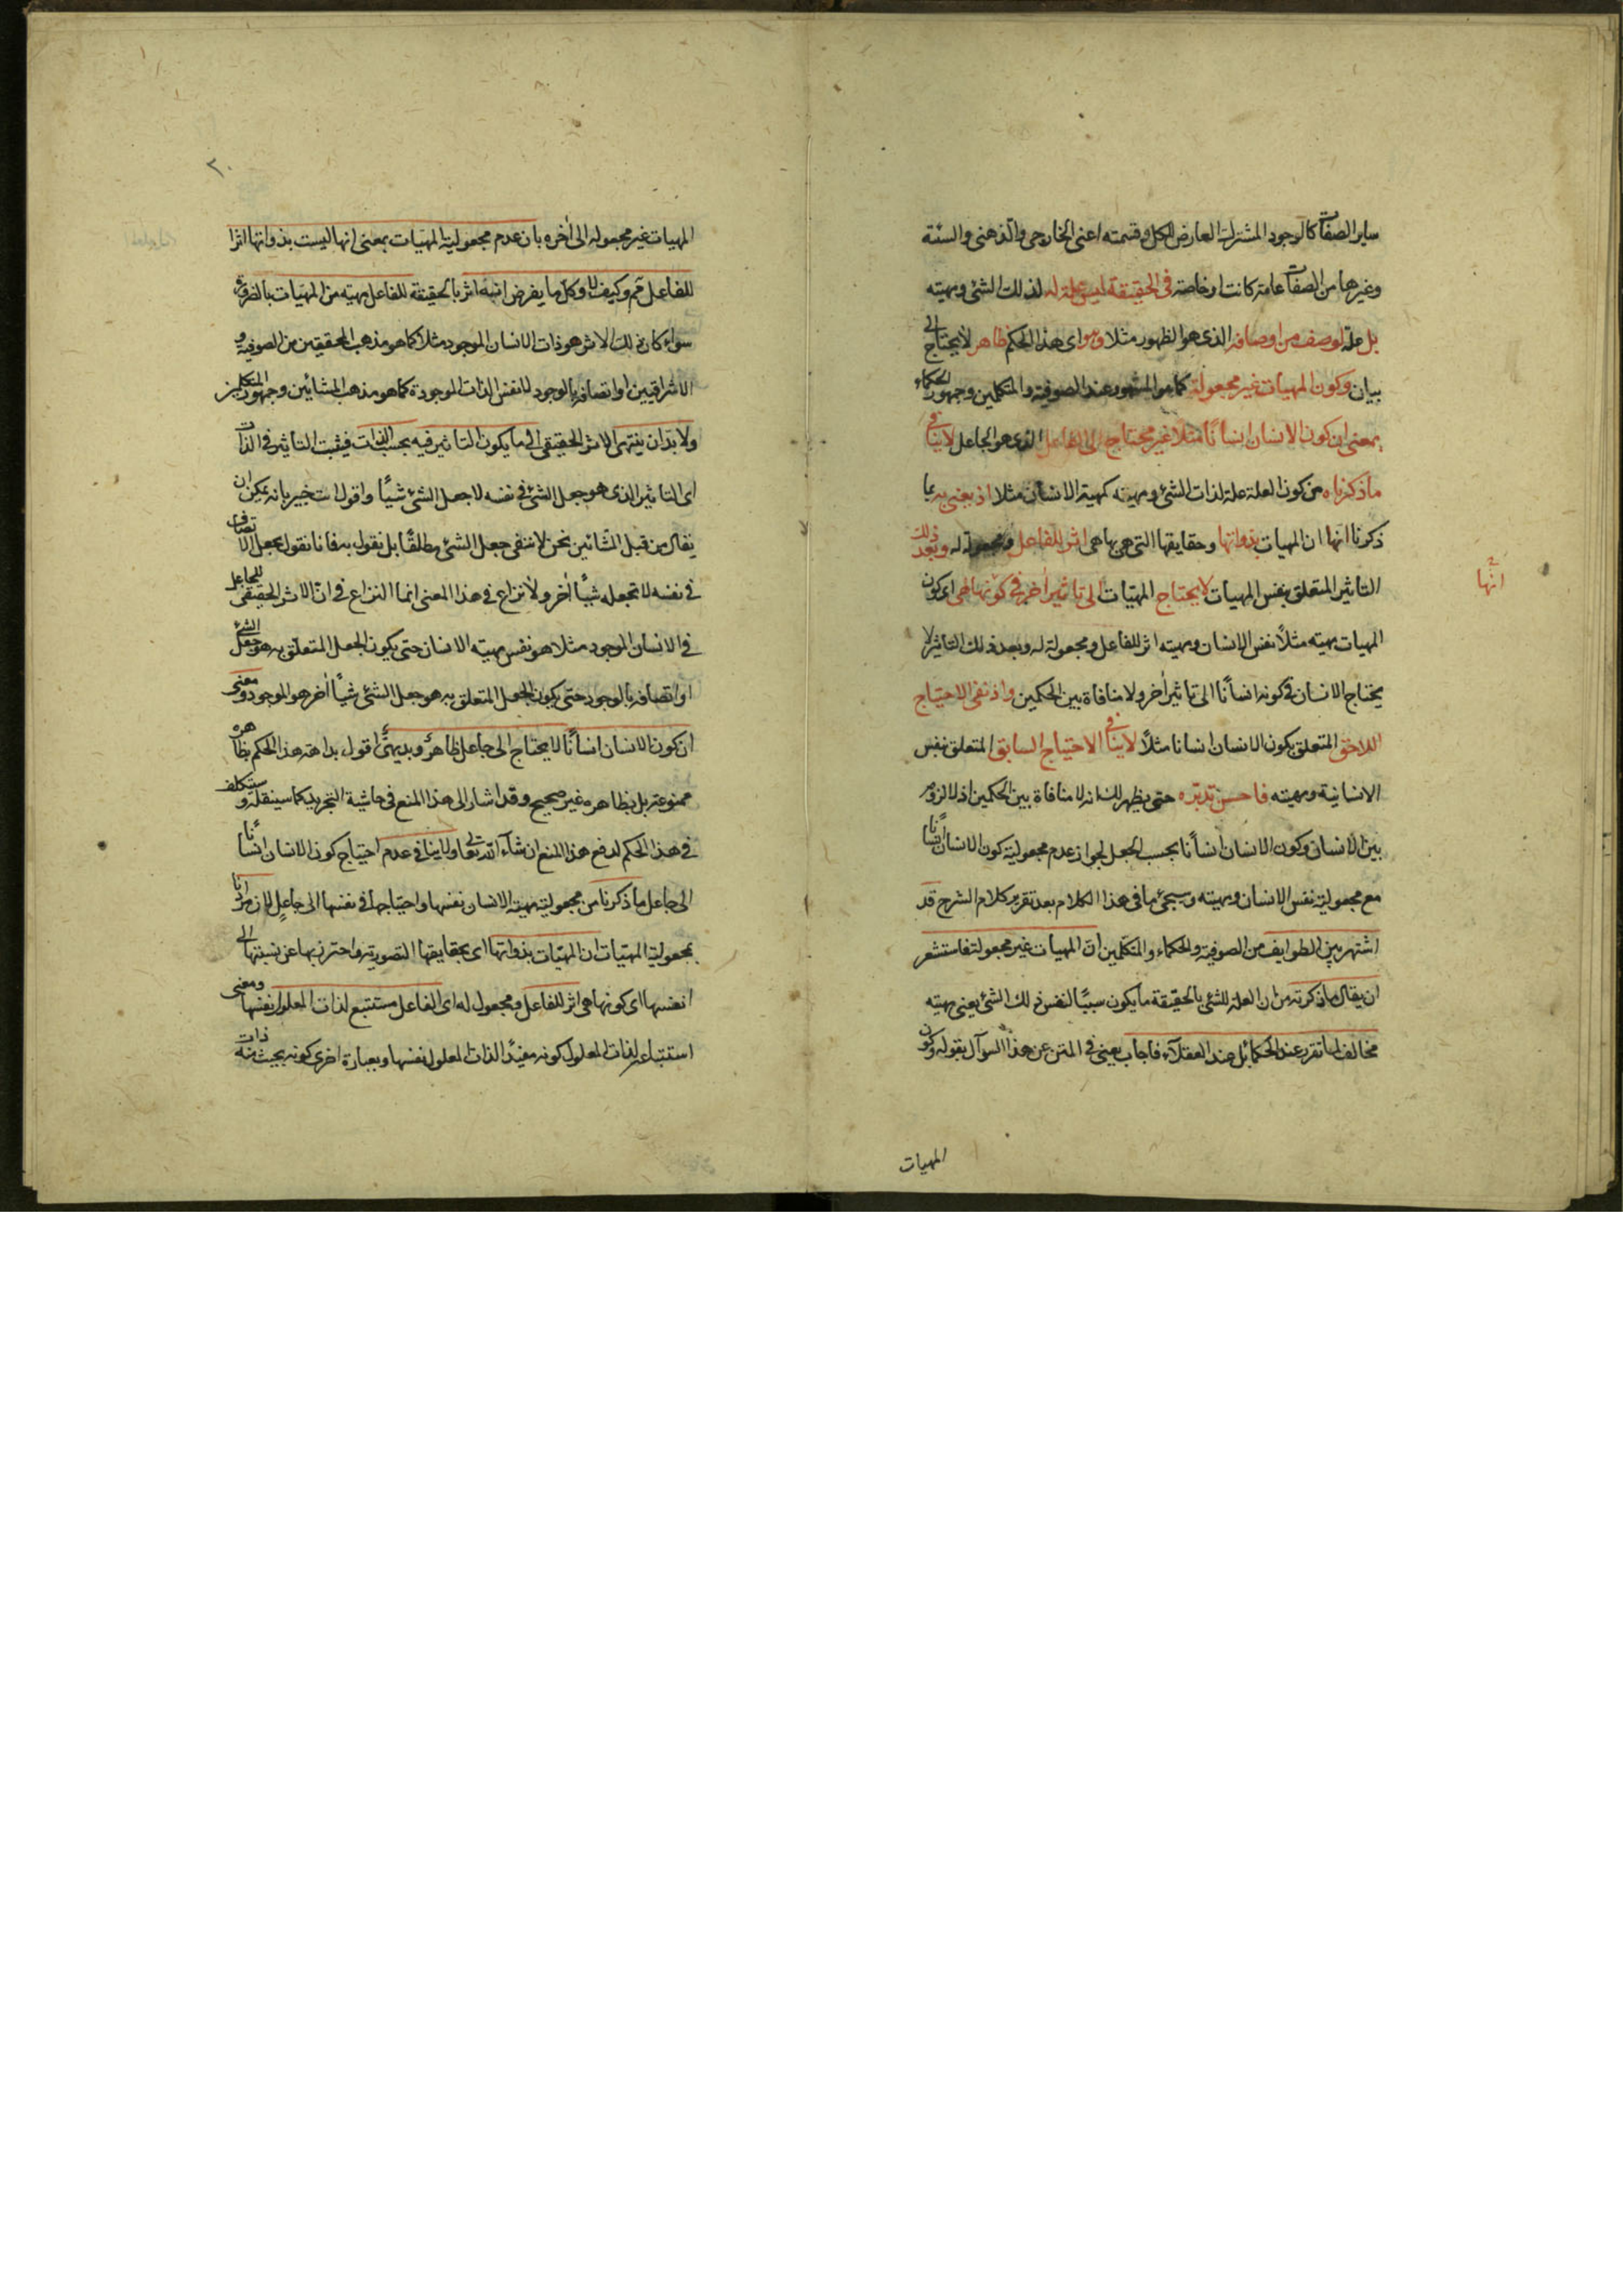 ساير الصفات كالوجود المشترك العارض للكل وقسمته اعني الخارجي والذهني والسنة
وغيرها من الصفات عامة كانت او خاصة في الحقيقة ليس علة له لذلك الشئ ومهيته
بل علة لوصف من اوصافه الذي هو الظهور مثلا وهو اى هذا الحكم ظاهر لا يحتاج الى
بيان وكون المهيات غير مجعولة كما هو المشهور عند الصوفية والمتكلمين وجمهور الحكماء
بمعنى ان كون الانسان انسانًا مثلا غير محتاج الى الفاعل الذي هو الجاعل لا ينافى
ما ذكرناه من كون العلة علة لذات الشئ ومهيته كمهية الانسان مثلا اذ يعنى به بما
ذكرنا انها ان المهيات بذواتها وحقايقها التى هى بها هى اثر للفاعل ومجعولة له وبعد ذلك
التاثير المتعلق بنفس المهيات لا يحتاج المهيّات الى تاثير آخر فى كونها هى اى كون
المهيات مهيته مثلاً نفس الانسان ومهيته اثر للفاعل ومجعولة له وبعد ذلك التاثير لا
يحتاج الانسان فى كونه انسانًا الى تاثير آخر ولا منافاة بين الحكمين واذ نفى الاحتياج
اللاحق المتعلق بكون الانسان انسانا مثلاً لا ينافى الاحتياج السابق المتعلق بنفس
الانسانية ومهيته فاحسن تدبّره حتى يظهر لك انه لا منافاة بين الحكمين اذ لا لزوم
بين الانسان وكون الانسان انسانًا بحسب الجعل لجواز عدم مجعولية كون الانسان انسانًا
مع مجعولية نفس الانسان ومهيته وسيجئ ما فى هذا الكلام بعد تقرير كلام الشرح قد
اشتهر بين الطوايف من الصوفية والحكماء والمتكلّمين انّ المهيات غير مجعولة فاستشعر
ان يقال ما ذكرته من ان العلة للشئ بالحقيقة ما يكون سببًا لنفس ذلك الشئ يعنى مهيته
مخالف لما تقرر عند الحكماء بل عند العقلآء فاجاب يعنى فى المتن عن هذا السوآل بقوله وكون
المهيات
انّها
٢٠
المهيات غير مجعولة الى آخره بان عدم مجعولية المهيّات بمعنى انها ليست بذواتها اثرا
للفاعل ثم وكيف لا وكل ما يفرض انه اثر بالحقيقة للفاعل مهيته من المهيّات بالضرورة
سواء كان ذلك الاثر هو ذات الانسان الموجود مثلا كما هو مذهب المحققين من الصوفية و
الاشراقيين او اتصافه بالوجود لا نفس الذات الموجودة كما هو مذهب المشائين وجمهور المتكلمين
ولا بدّ ان ينتهى الاثر الحقيقى الى ما يكون التاثير فيه بحسب الذات فيثبت التاثير فى الذات
اى التاثير الذى هو جعل الشئ فى نفسه لا جعل الشئ شيئًا واقول انت خبير بانه يمكن ان
يقال من قبل المشائين نحن لا ننفى جعل الشئ مطلقًا بل نقول به فانا نقول بجعل الاتصاف
فى نفسه لا بجعله شيئًا آخر ولا نزاع فى هذا المعنى انما النزاع فى انّ الاثر الحقيقى للجاعل
فى الانسان الموجود مثلا هو نفس مهيته الانسان حتى يكون الجعل المتعلق به هو جعل الشئ
او اتصافه بالوجود حتى يكون الجعل المتعلق به هو جعل الشئ شيئًا آخر هو الموجود ومعنى
ان كون الانسان انسانًا لا يحتاج الى جاعل ظاهر وبديهى اقول بداهة هذا الحكم ظاهره
ممنوعة بل بظاهره غير صحيح وقد اشار الى هذا المنع فى حاشية التجريد كما سينقله وستكلف
فى هذا الحكم لدفع هذا المنع ان شآء الله تعالى ولا ينافى عدم احتياج كون الانسان انسانًا
الى جاعل ما ذكرنا من مجعولية مهية الانسان نفسها واحتياجها فى نفسها الى جاعل لان مرادنا
بمجعولية المهيّات ان المهيّات بذواتها اى بحقايقها التصورية واحترز بها عن نسبتها الى
انفسها اى كونها هى اثر للفاعل ومجعول له اى الفاعل مستتبع لذات المعلول نفسها ومعنى
استتباعه لذات المعلول كونه مفيدًا لذات المعلول نفسها وبعبارة اخرى كونه بحيث ذات